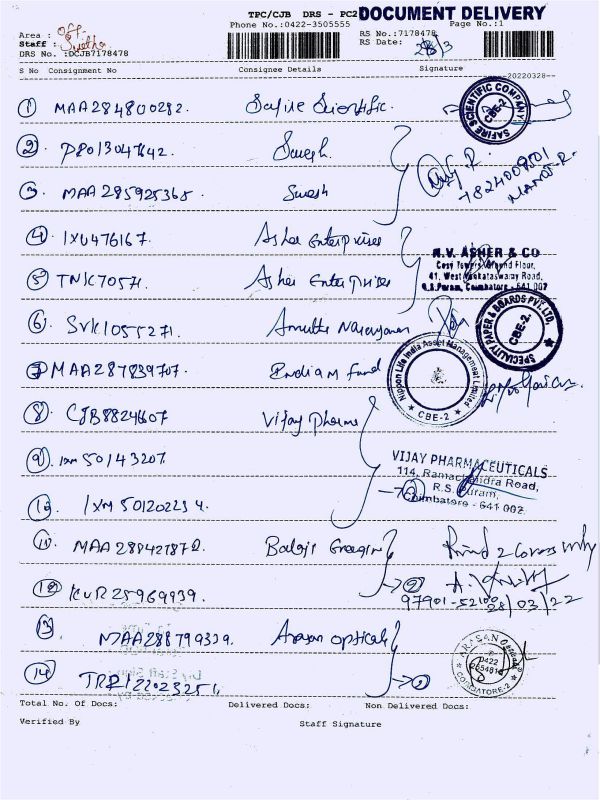 TPC/CJB DRS - PC2 DOCUMENT DELIVERY
Phone No.:0422-3505555 Page No.:1
Area :
Staff : Swetha
DRS No. :DCJB7178478
RS No.:7178478
RS Date: 28/3
S No Consignment No Consignee Details Signature
--20220328--
1 MAA284800282. Safire Scientific.
SAFIRE SCIENTIFIC COMPANY CBE-2
2. Suresh.
3. MAA285925365 Suresh
7824009501
MANOJ.R.
4. IXU476167. Asher Enterprises
5. TNK70571. Asher Enterprises
N.V. ASHER & CO
Cosy Towers, Ground Floor,
41, West Venkataswamy Road,
R.S.Puram, Coimbatore - 641 002
6. SVK1055271. Amutha Narayanan
SPECIALITY PAPER & BOARDS PVT. LTD. CBE-2.
7 MAA287839707. Indian Fund
Nippon Life India Asset Management Limited CBE-2
8. CJB8824607 Vijay Pharma
9. IXM 50143207
VIJAY PHARMACEUTICALS
114, Ramachandra Road,
R.S. Puram,
Coimbatore - 641 002.
10. IXM 501202234.
11. Balaji
Rcvd 2 covers only
12. KUR25969939.
97901-52100
28/03/22
13. MAA288799339. Arasan opticals
ARASAN Opticals
0422
COIMBATORE-2
14.
Total No. Of Docs: Delivered Docs: Non Delivered Docs:
Verified By Staff Signature